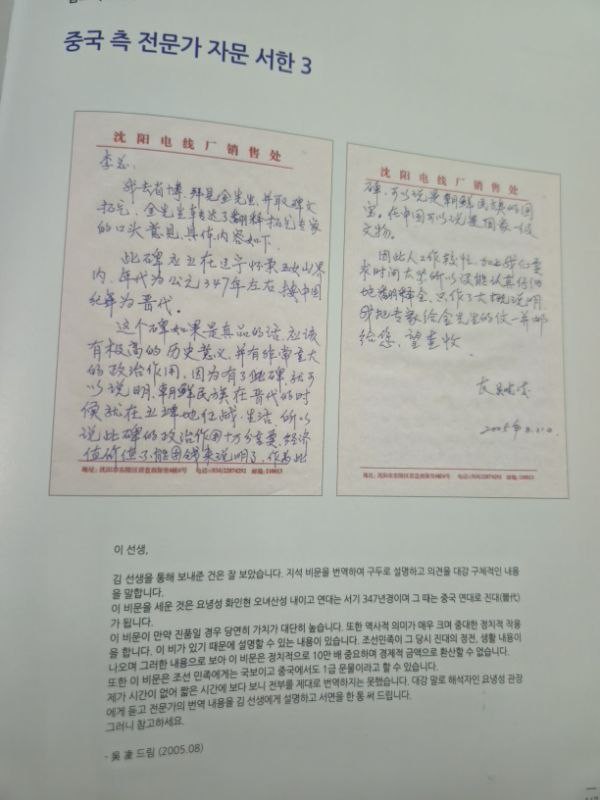 중국 측 전문가 자문 서한 3
沈阳电线厂销售处
李总.
我去省博,拜见金先生,并取碑文
拓片,金先生转达了翻释拓片专家
的口头意见,具体内容如下.
此碑应立在辽宁怀桼五女山界
内,年代为公元347年左右,按中国
纪年为晋代。
这个碑如果是真品的话,应该
有极高的历史意义,并有非常重大
的政治作用,因为有了此碑,就可
以说明,朝鲜民族在晋代的时
候就在 生活,所以
说此碑的政治作用十分重要,经济
地址: 沈阳市
沈阳电线厂销售处
碑,可以说是朝鲜民族的国
宝,在中国可以说是国家一级
文物。
因此人工作较忙,加上我们要
求时间太 所以没能认真仔细
地翻释全,只作了大概说明
我把专家给金先生的信一并邮
给您,望查收
2005年
이 선생,
김 선생을 통해 보내준 건은 잘 보았습니다. 지석 비문을 번역하여 구두로 설명하고 의견을 대강 구체적인 내용
을 말합니다.
이 비문을 세운 것은 요녕성 화인현 오녀산성 내이고 연대는 서기 347년경이며 그 때는 중국 연대로 진대(晉代)
가 됩니다.
이 비문이 만약 진품일 경우 당연히 가치가 대단히 높습니다. 또한 역사적 의미가 매우 크며 중대한 정치적 작용
을 합니다. 이 비가 있기 때문에 설명할 수 있는 내용이 있습니다. 조선민족이 그 당시 진대의 정전, 생활 내용이
나오며 그러한 내용으로 보아 이 비문은 정치적으로 10만 배 중요하며 경제적 금액으로 환산할 수 없습니다.
또한 이 비문은 조선 민족에게는 국보이고 중국에서도 1급 문물이라고 할 수 있습니다.
제가 시간이 없어 짧은 시간에 보다 보니 전부를 제대로 번역하지는 못했습니다. 대강 말로 해석자인 요녕성 관장
에게 듣고 전문가의 번역 내용을 김 선생에게 설명하고 서면을 한 통 써 드립니다.
그러니 참고하세요.
- 吳 凌 드림 (2005.08)